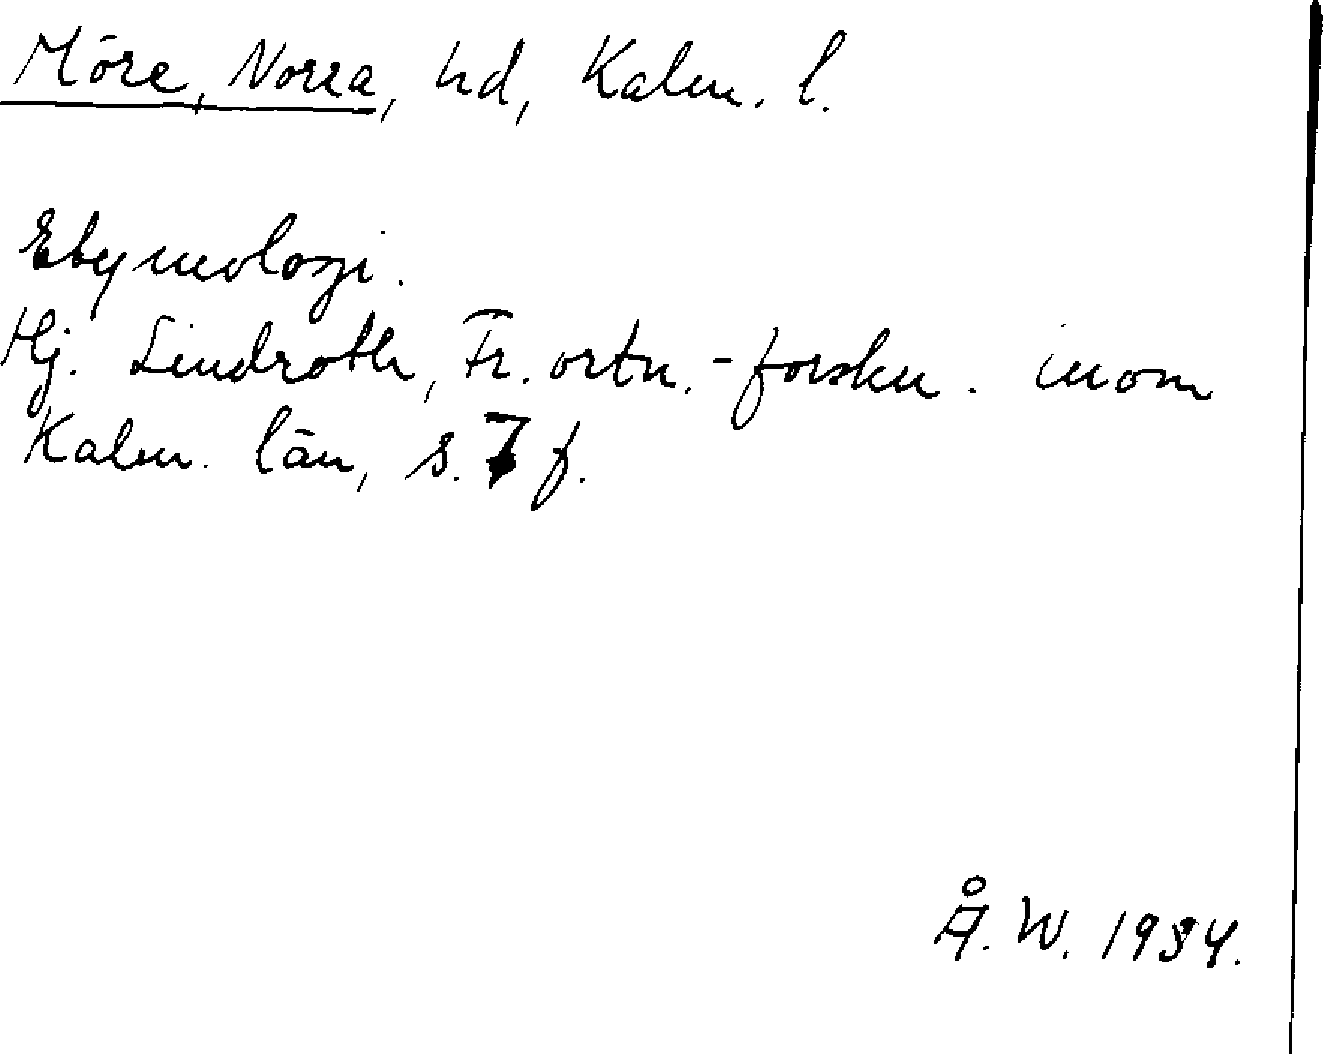 Möre, Norra, hd, Kalm. l.
Etymologi.
Hj. Lindroth, Fr. ortn.-forskn. inom
Kalm. län, s. 7 f.
Å. W. 1934.